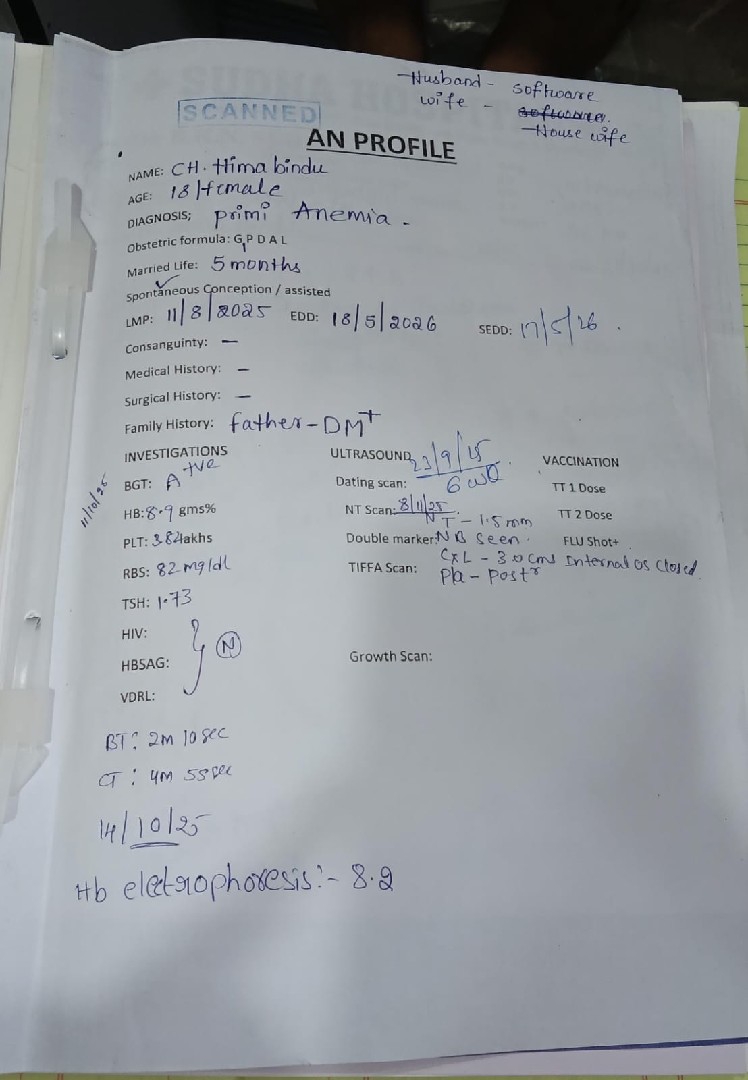 Husband - software
wife - software.
House wife
SCANNED
AN PROFILE
NAME: CH. Hima bindu
AGE: 18/female
DIAGNOSIS; primi Anemia.
Obstetric formula: G1P D A L
Married Life: 5 months
Spontaneous Conception / assisted
LMP: 11/8/2025 EDD: 18/5/2026 SEDD: 17/5/26.
Consanguinty: —
Medical History: —
Surgical History: —
Family History: father - DM+
INVESTIGATIONS ULTRASOUND 23/9/25. VACCINATION
11/10/25
BGT: A +ve Dating scan: 6w TT 1 Dose
HB: 8.9 gms% NT Scan: 8/11/25 NT - 1.5 mm TT 2 Dose
PLT: 3.82 lakhs Double marker: NB seen. FLU Shot+
RBS: 82 mg/dl TIFFA Scan: CxL - 3.0 cms Internal os closed
Pla - Postr
TSH: 1.73
HIV:
HBSAG: N Growth Scan:
VDRL:
BT: 2m 10 sec
CT: 4m 55 sec
14/10/25
Hb eletrophoresis:- 8.2